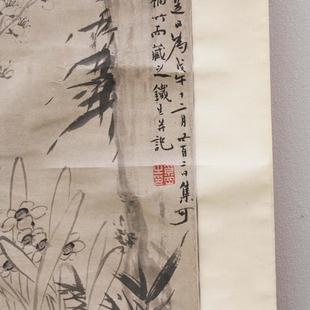 是日為戊午十二月廿有二日集可
楠竹而藏之鐵生并記